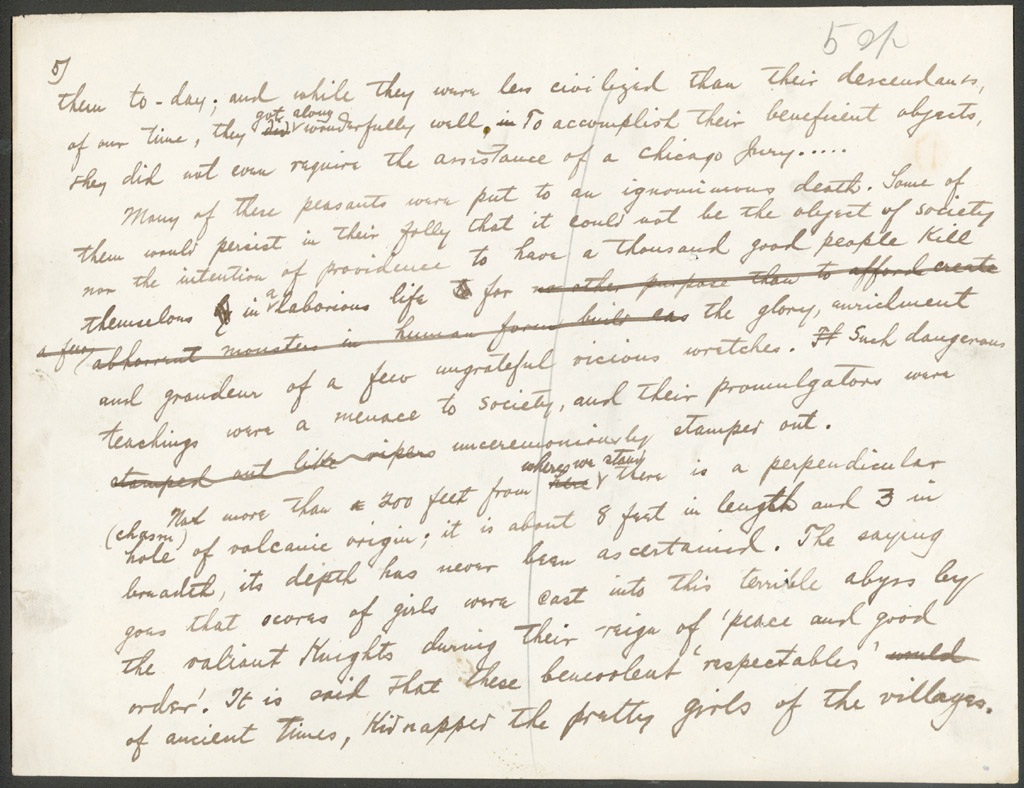 5 2/2
5)
them to-day; and while they were less civilized than their descendants,
of our time, they did got along wonderfully well, in To accomplish their beneficent objects,
they did not even require the assistance of a Chicago Jury.....
Many of these peasants were put to an ignominious death. Some of
them would persist in their folly that it could not be the object of society
nor the intention of providence to have a thousand good people kill
themselves in a laborious life for no other purpose than to afford create
a few abhorrent monsters in human form built as the glory, enrichment
and grandeur of a few ungrateful vicious wretches. It Such dangerous
teachings were a menace to society, and their promulgators were
stamped out like vipers unceremoniously stamped out.
Not more than a 200 feet from here where we stand there is a perpendicular
(chasm)
hole of volcanic origin; it is about 8 feet in length and 3 in
breadth, its depth has never been ascertained. The saying
goes that scores of girls were cast into this terrible abyss by
the valiant Knights during their reign of 'peace and good
order'. It is said that these benevolent 'respectables' would
of ancient times, kidnapped the pretty girls of the villages.